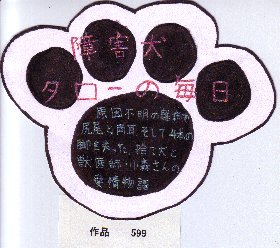 障害犬
タローの毎日
原因不明の難病で
尻尾と両耳そして4本の
脚を失った、捨て犬と
獣医師・小森さんの
愛情物語
作品 599